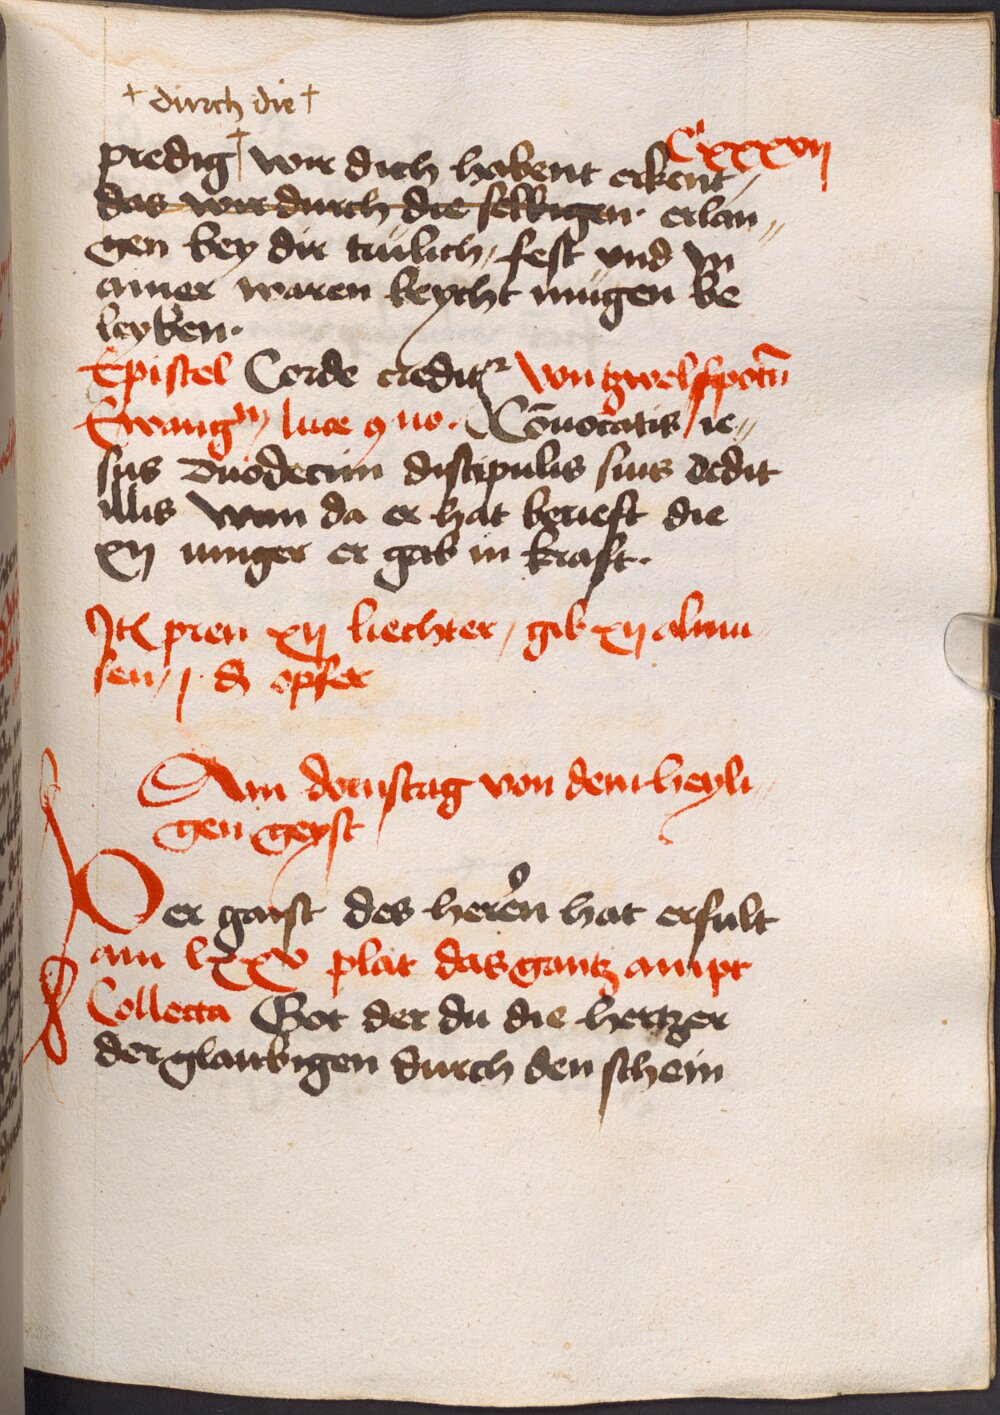 + durch die +
Cxxxvij
predig + wir dich habent erkent /
das wir durch die selbigen · erlan„
gen bey dir trülich / fest und in
ainer waren beycht mügen be
leyben ·
Epistel Corde creditr von tzwelfpotñ
Ewangm / luce 9 no · Cōuocatis / ie„
sus duodecim discipulis suis dedit
illis Wan da er hat berieft die
xij iunger er gab in kraft ·
Itē pren xij liechter / gib xij almu
sen / j · d opfer
Am dornstag von dem heyli„
gen geyst
Der gaist des heren hat erfult
am lxxv plat das gantz ampt
Collecta Got der du die hertzer
der glaubigen durch den schein